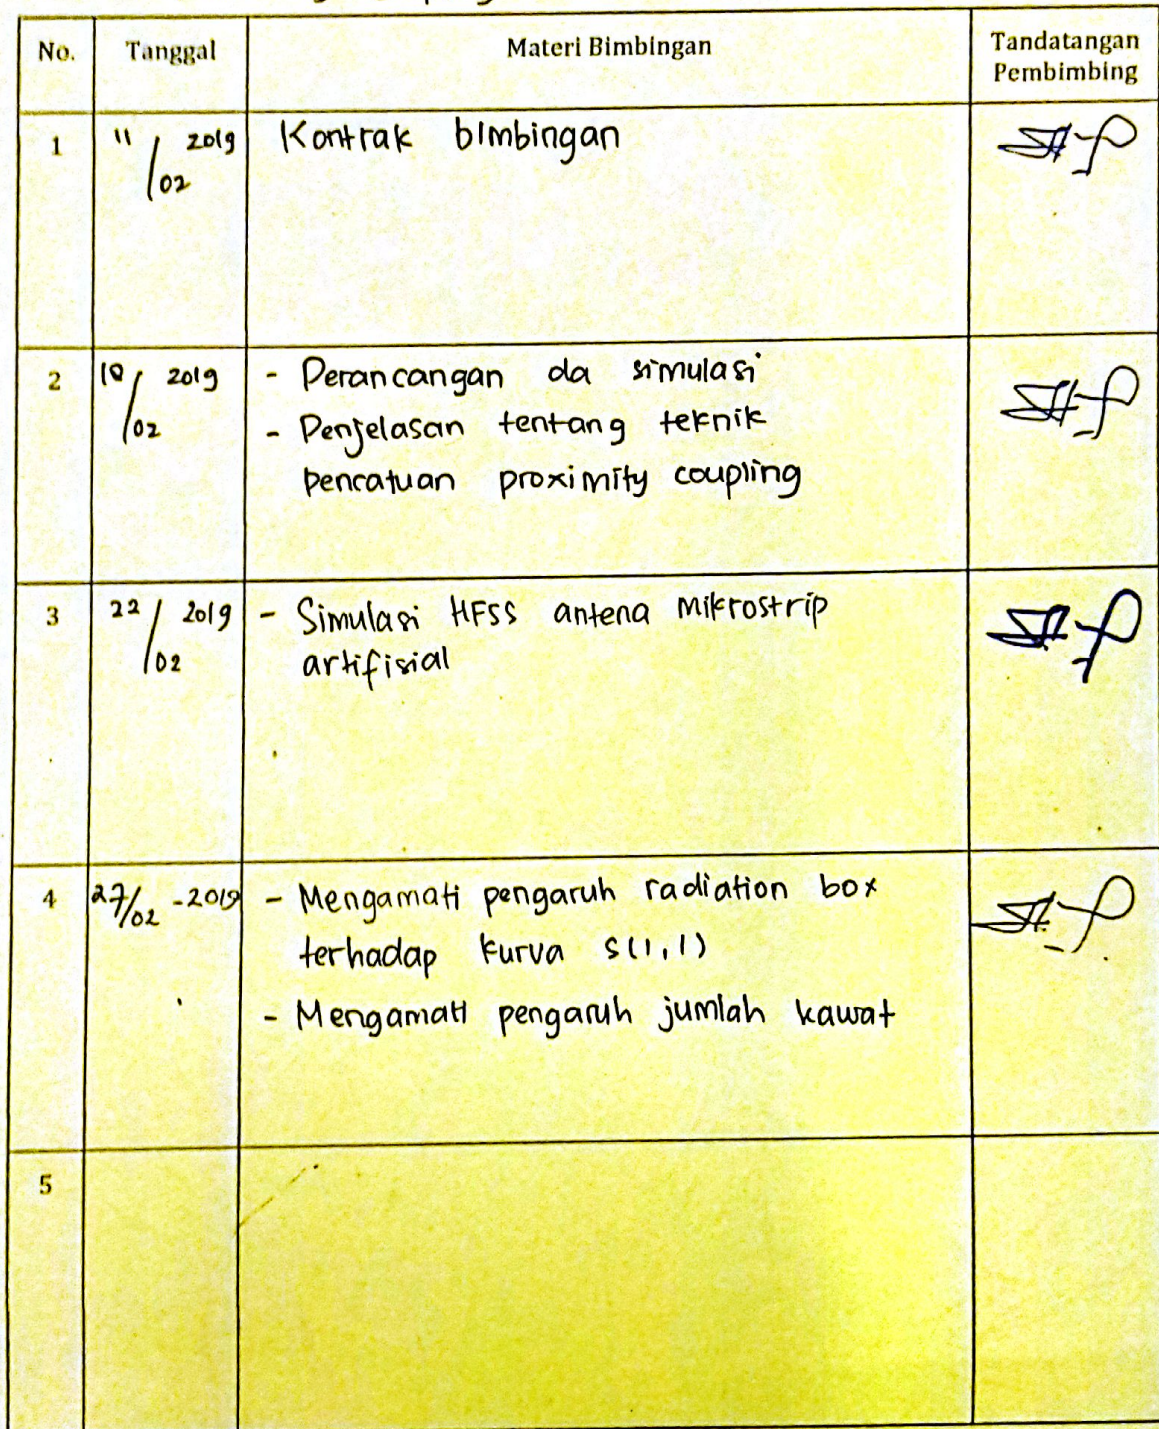 No. Tanggal Materi Bimbingan Tandatangan
Pembimbing
1 11/02 2019 Kontrak bimbingan
2 /02 2019 - Perancangan da simulasi
- Penjelasan tentang teknik
pencatuan proximity coupling
3 22/02 2019 - Simulasi HFSS antena mikrostrip
artifisial
4 27/02 - 2019 - Mengamati pengaruh radiation box
terhadap kurva S(1,1)
- Mengamati pengaruh jumlah kawat
5